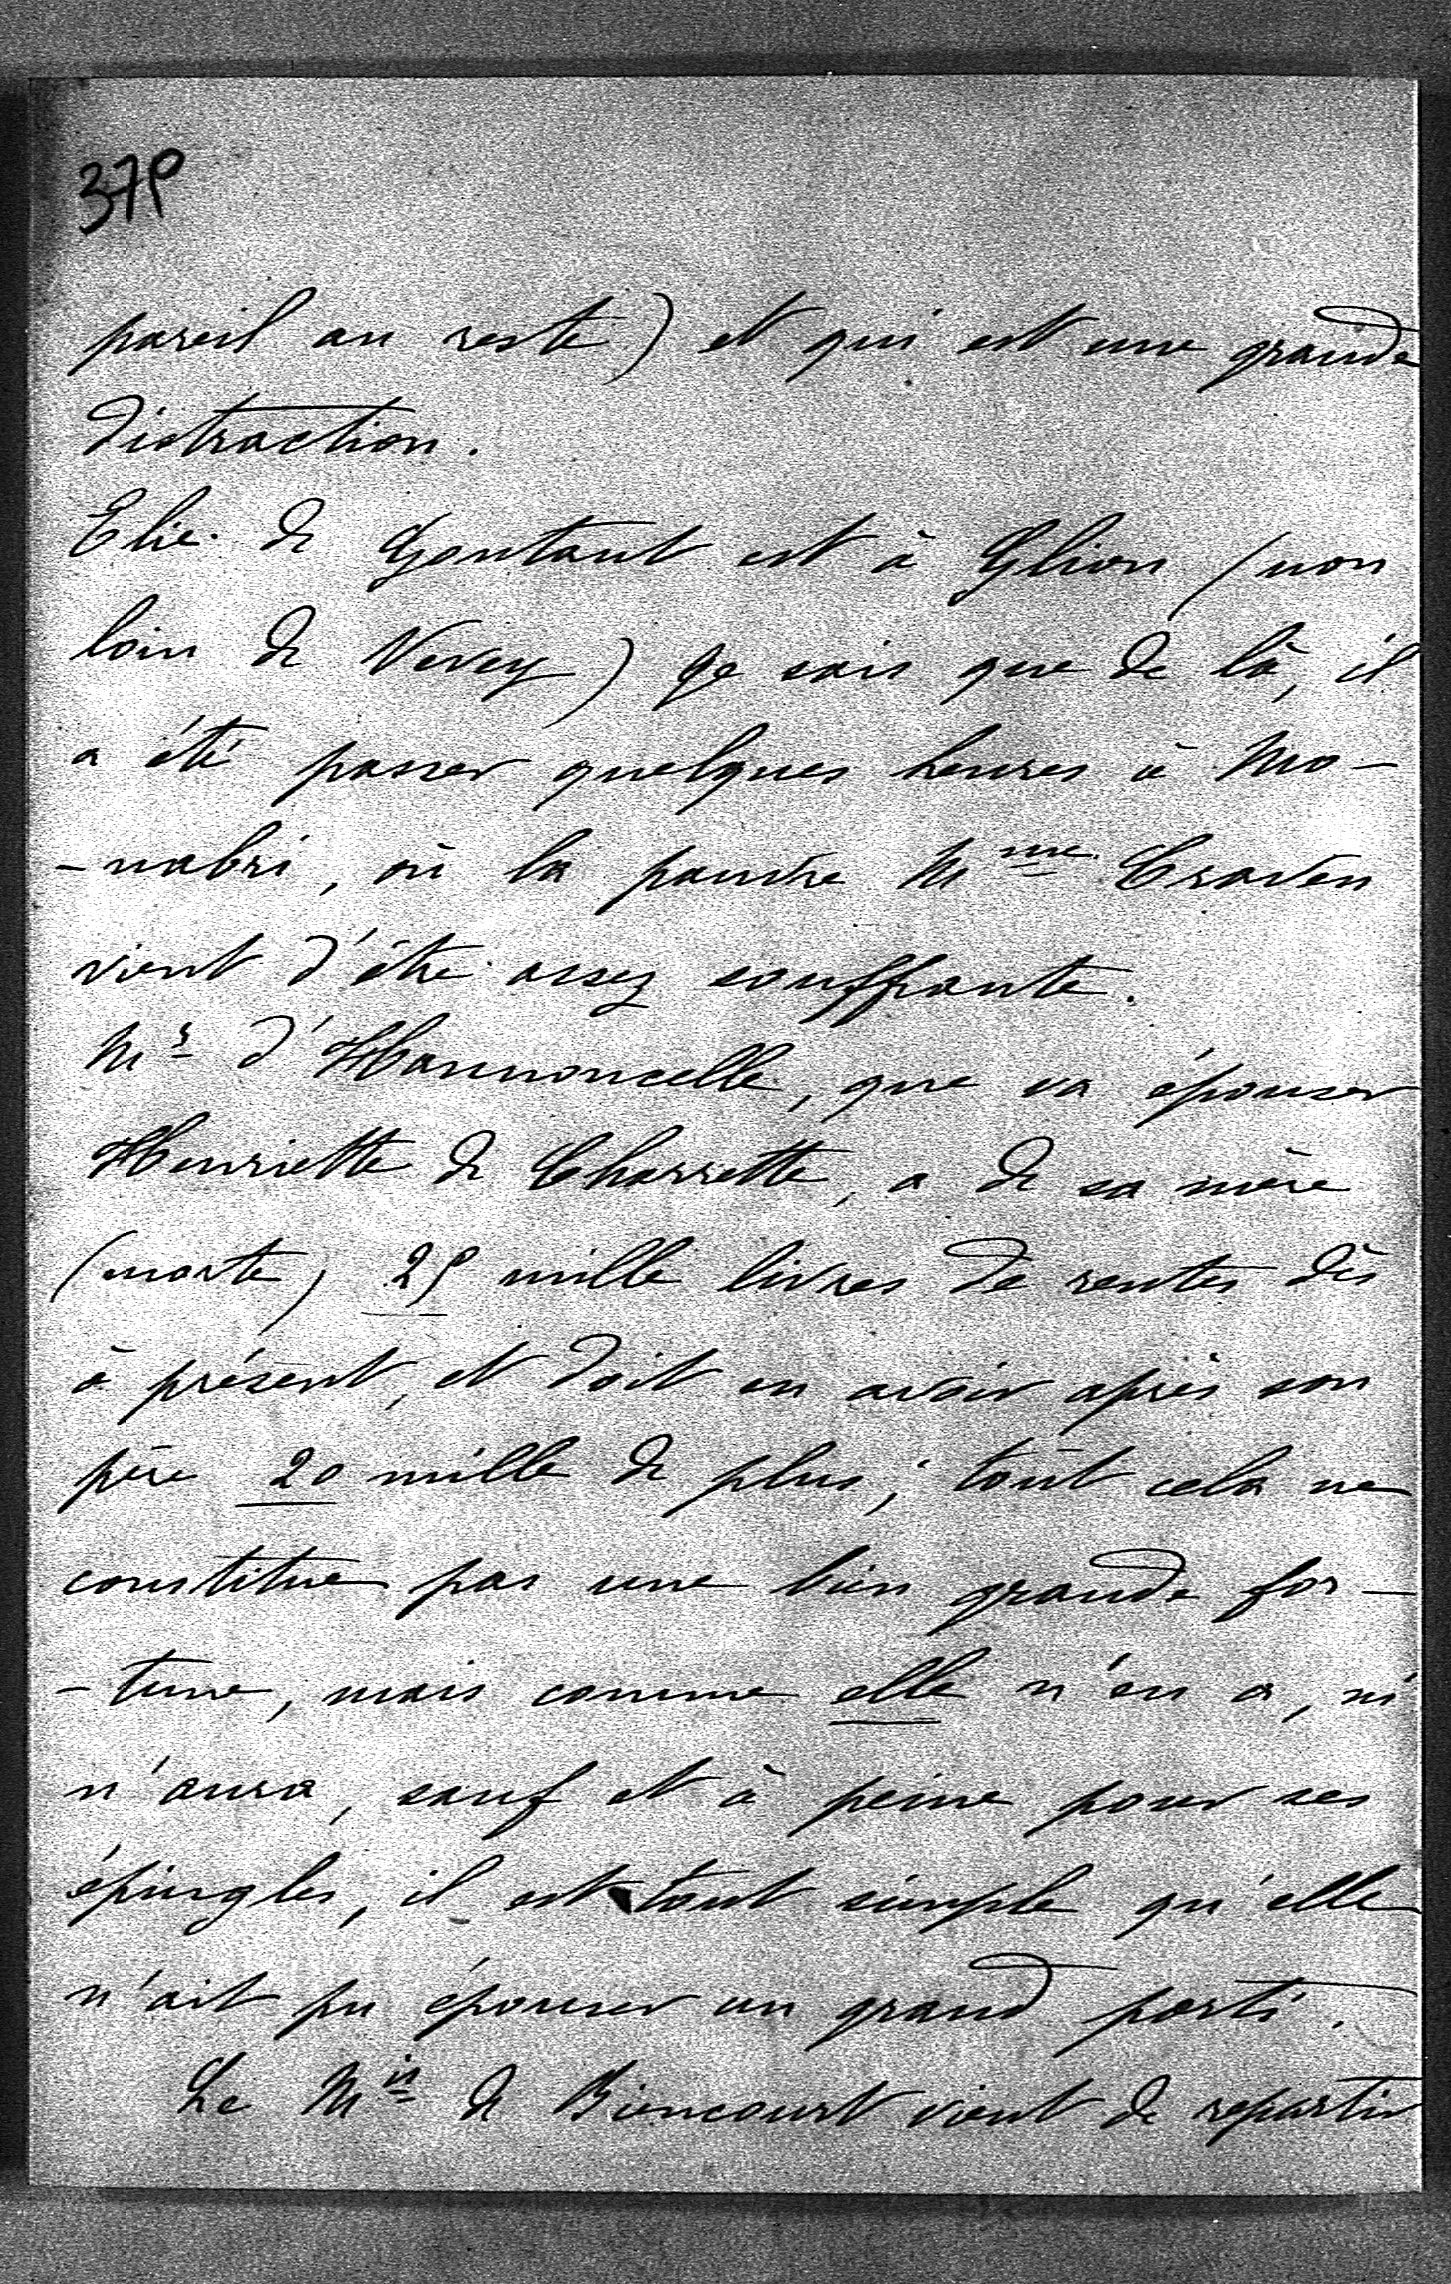 375
pareil au reste) et qui est une grande
distraction.
Elie de Gontaut est à Glion (non
loin de Vevey) je sais que de là, il
a été passer quelques heures à Mo-
-nabri, où la pauvre Mme Craven
vient d'être assez souffrante.
Mr d'Hannoncelle, que va épouser
Henriette de Charrette, a de sa mère
(morte) 25 mille livres de rentes dès
à présent, et doit en avoir après son
père 20 mille de plus; tout cela ne
constitue pas une bien grande for-
-tune, mais comme elle n'en a, ni
n'aura, sauf et à peine pour ses
épingles, il est tout simple qu'elle
n'ait pu épouser un grand parti.
Le Mis de Biencourt vient de repartir